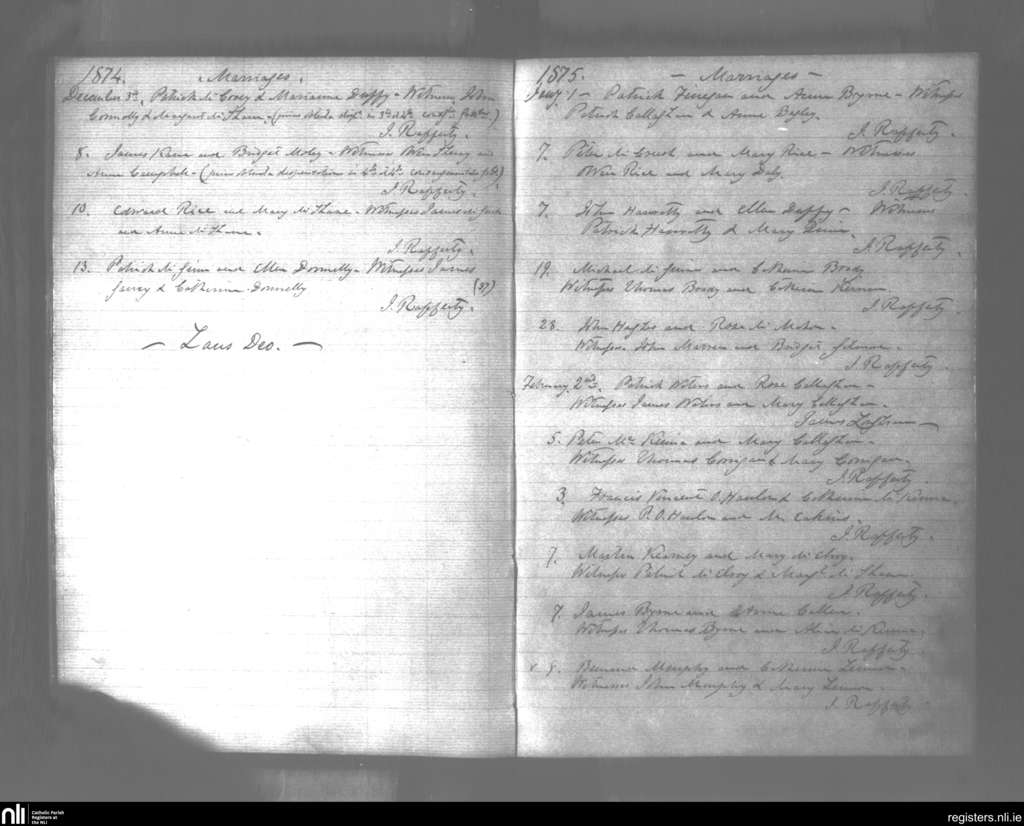 1874. Marriages.
December 3rd. Patrick Mc Coney & Marianne Duffy - Witnesses John
Connolly & Margaret Mc Shane. (prius obtenta disp. in 3o et 4o consg.)
J. Rafferty.
8. James Keene and Bridget Moley - Witnesses Wm and
Anne Campbell - (prius obtenta dispensatione in 4o et 4o consanguinitatis)
J. Rafferty.
10. Edward Rice and Mary Mc Shane - Witnesses James
and Anne Mc Shane.
J. Rafferty.
13. Patrick Mc Ginn and Ellen Donnelly - Witnesses James
& Catherine Donnelly (37)
J. Rafferty.
- Laus Deo. -
1875. - Marriages -
Jany. 1 - Patrick Finegan and Anne Byrne - Witnesses
Patrick Callaghan & Anne
J. Rafferty.
7. Peter Mc Creesh and Mary Rice - Witnesses
Owen Rice and Mary Daly.
J. Rafferty.
7. John Hanratty and Ellen Duffy - Witnesses
Patrick Hanratty & Mary
J. Rafferty.
19. Michael Mc Guinn and Catherine Brady
Witnesses Thomas Brady and Catherine Kernan.
J. Rafferty.
28. John Hughes and Rose Mc Mahon -
Witnesses John and Bridget
J. Rafferty.
February 2nd. Patrick Waters and Rose Callaghan -
Witnesses James Waters and Mary Callaghan.
James Loughran -
5. Peter Mc Kenna and Mary Callaghan -
Witnesses Thomas Corrigan & Mary Corrigan.
J. Rafferty.
3. Francis Vincent O'Hanlon & Catherine Mc Kenna.
Witnesses P. O'Hanlon and M.
J. Rafferty.
7. Martin Kearney and Mary Mc Elroy.
Witnesses Patrick Mc Elroy & Margt. Mc Shane.
J. Rafferty.
7. James Byrne and Anne Cullen.
Witnesses Thomas Byrne and Alice Mc Kenna.
J. Rafferty.
8. Bernard Murphy and Catherine Lennon -
Witnesses John Murphy & Mary Lennon.
J. Rafferty.
nli
Catholic Parish
Registers at
the NLI
registers.nli.ie